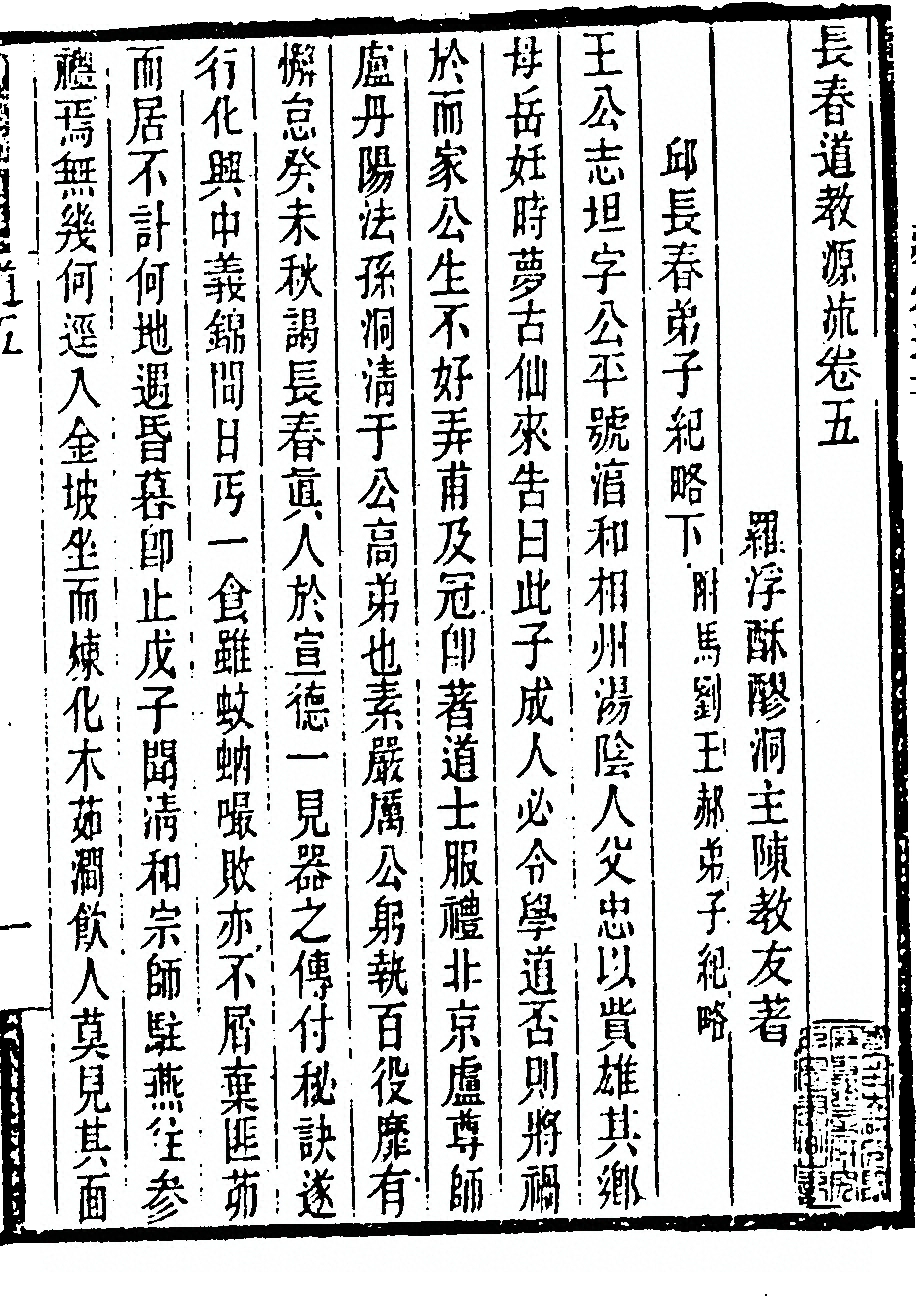 長春道教源流卷五
羅浮酥醪洞主陳教友著
邱長春弟子紀略下 附馬劉王郝弟子紀略
王公志坦字公平號淯和相州湯陰人父忠以貲雄其鄉
母岳妊時夢古仙來告曰此子成人必令學道否則將禍
於而家公生不好弄甫及冠卽著道士服禮北京盧尊師
盧丹陽法孫洞清于公高弟也素嚴厲公躬執百役靡有
懈怠癸未秋謁長春眞人於宣德一見器之傳付秘訣遂
行化興中義錦間日丐一食雖蚊蚋嘬敗亦不屑棄匪茆
而居不計何地遇昏暮卽止戊子聞清和宗師駐燕往參
禮焉無幾何逕入金坡坐而煉化木茹澗飲人莫見其面
一